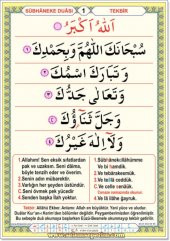 SÜBHÂNEKE DUÂSI
1
TEKBİR
اَللّٰهُ اَكْبَرُ
سُبْحَانَكَ اللّٰهُمَّ وَبِحَمْدِكَ
وَتَبَارَكَ اسْمُكَ
وَتَعَالٰى جَدُّكَ
وَجَلَّ ثَنَاؤُكَ
وَلَٓا اِلٰهَ غَيْرُكَ
1. Allahım! Sen eksik sıfatlardan
pak ve uzaksın. Seni daima,
böyle tenzih eder ve överim.
2. Senin adın mübarektir.
3. Varlığın her şeyden üstündür.
4. Seni övmek pek yücedir
5. Senden başka ilah yoktur.
1. Sübhânekellâhümme
Ve bi hamdik.
2. Ve tebârekesmük.
3. Ve teâlâ ceddük.
4. Ve celle senâük.
5. Ve lâ ilâhe ğayrük.